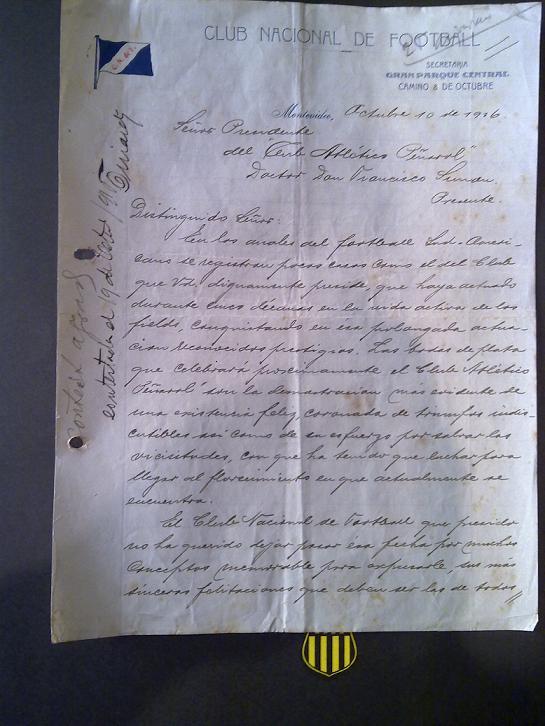 CLUB NACIONAL DE FOOTBALL
SECRETARIA
GRAN PARQUE CENTRAL
CAMINO 8 DE OCTUBRE
C.N.de F.
Montevideo, Octubre 10 de 1916.
Señor Presidente
del "Club Atlético Peñarol"
Doctor Don Francisco Simón.
Presente.
Distinguido Señor:
En los anales del football Sud-Ameri-
cano se registran pocos casos como el del Club
que Vd. dignamente preside, que haya actuado
durante cinco décadas en la vida activa de los
fields, conquistando en esa prolongada actua-
cion reconocidos prestigios. Las bodas de plata
que celebrará proximamente el Club Atlético
Peñarol son la demostracion más evidente de
una existencia feliz, coronada de triunfos indis-
cutibles asi como de su esfuerzo por salvar las
vicisitudes, con que ha tenido que luchar para
llegar al florecimiento en que actualmente se
encuentra.
El Club Nacional de Football que presido
no ha querido dejar pasar ésa fecha por muchos
conceptos memorable para expresarle, sus más
sinceras felitaciones que deben ser las de todos
contestada el 19 de